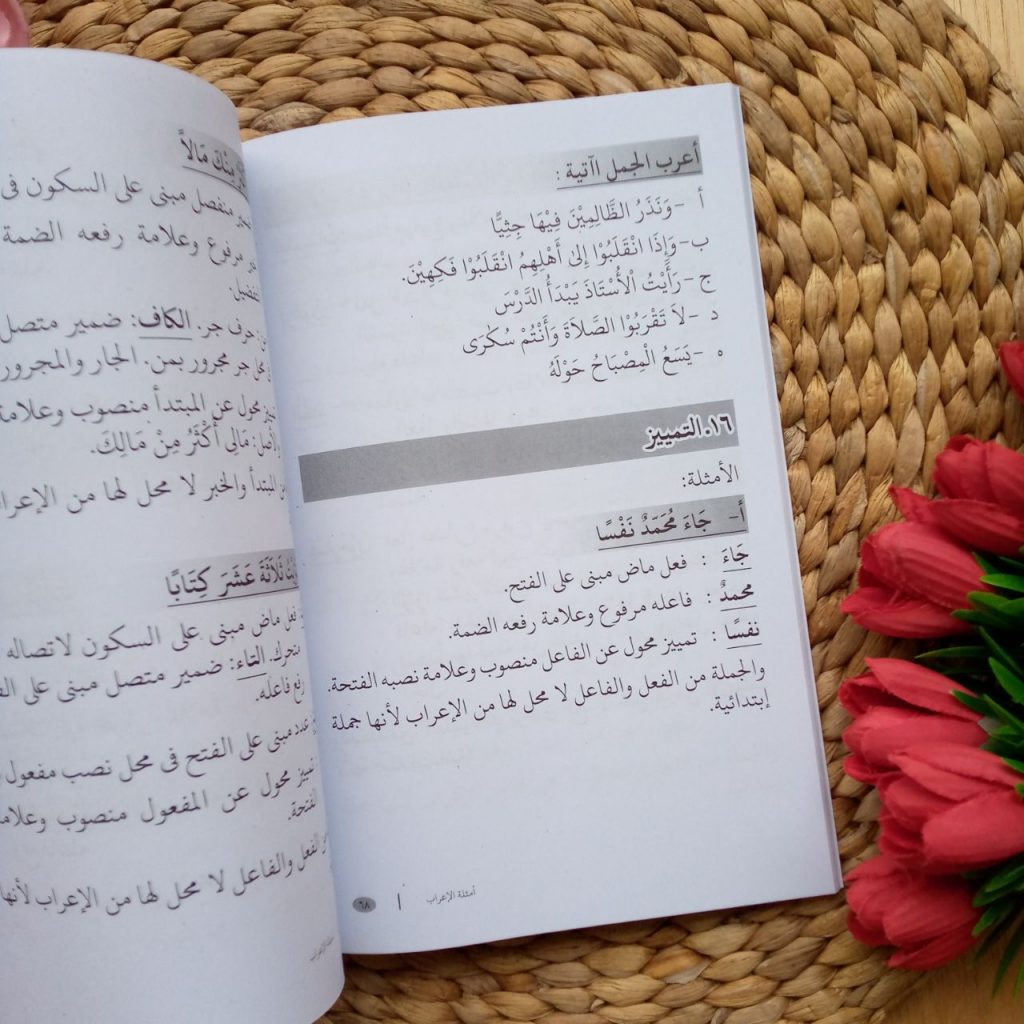 أعرب الجمل اآتية :
أ -وَنَذَرُ الظَّالِمِيْنَ فِيْهَا جِثِيًّا
ب-وَإِذَا انْقَلَبُوْا إِلىٰ أَهْلِهِمُ انْقَلَبُوْا فَكِهِيْنَ.
ج-رَأَيْتُ الْأُسْتَاذَ يَبْدَأُ الدَّرْسَ
د -لاَ تَقْرَبُوْا الصَّلاَةَ وَأَنْتُمْ سُكَرَى
ه -يَسَعُ الْمِصْبَاحُ حَوْلَهُ
١٦.التمييز
الأمثلة:
أ- جَاءَ مُحَمَّدٌ نَفْسًا
جَاءَ : فعل ماض مبنى على الفتح.
محمدٌ : فاعله مرفوع وعلامة رفعه الضمة.
نفسًا : تمييز محول عن الفاعل منصوب وعلامة نصبه الفتحة.
والجملة من الفعل والفاعل لا محل لها من الإعراب لأنها جملة
إبتدائية.
أمثلة الإعراب | ٦٨
مِنْكَ مَالاً
منفصل مبنى على السكون فى
مرفوع وعلامة رفعه الضمة
حرف جر. الكاف: ضمير متصل
محل جر مجرور بمن. الجار والمجرور
محول عن المبتدأ منصوب وعلامة
مَالِى أَكْثَرُ مِنْ مَالِكَ.
المبتدأ والخبر لا محل لها من الإعراب
ثَلاَثَةَ عَشَرَ كِتَابًا
فعل ماض مبنى على السكون لاتصاله
متحرك. التاء: ضمير متصل مبنى على
رفع فاعله.
عدد مبنى على الفتح فى محل نصب مفعول
تمييز محول عن المفعول منصوب وعلامة
الفتحة.
الفعل والفاعل لا محل لها من الإعراب لأنها